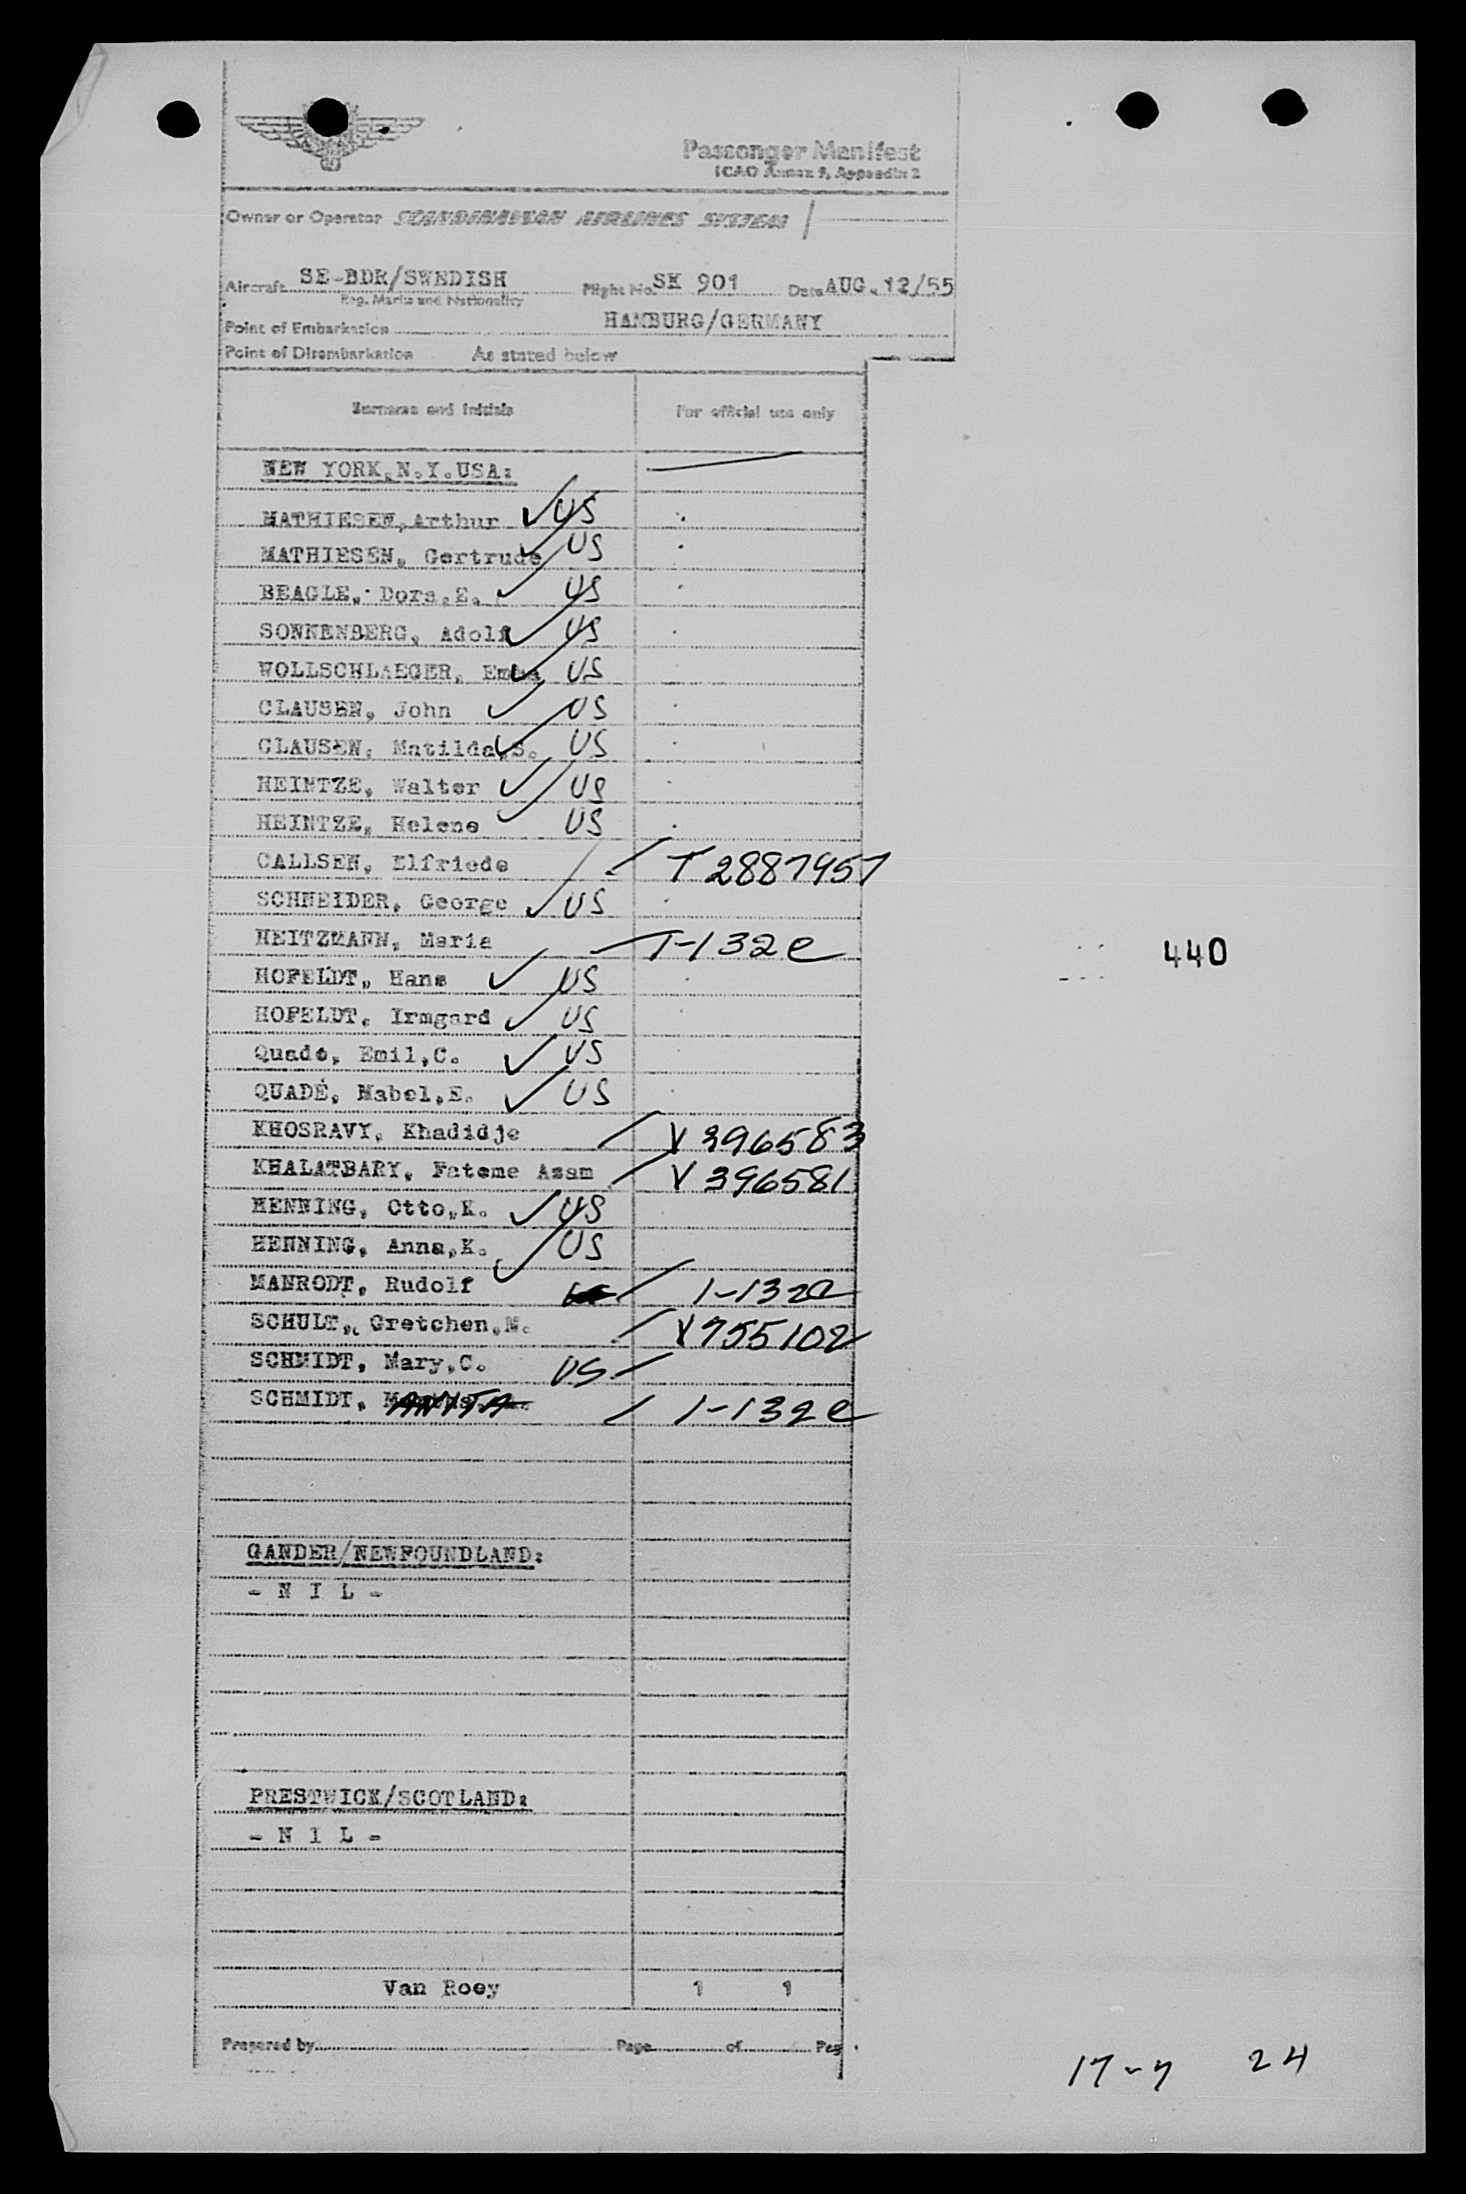 Passenger Manifest
ICAO Annex 9, Appendix 2
Owner or Operator SCANDINAVIAN AIRLINES SYSTEM
Aircraft SE-BDR/SWEDISH Flight No. SK 901 Date AUG. 12/55
Reg. Marks and Nationality
Point of Embarkation HAMBURG/GERMANY
Point of Disembarkation As stated below
Surname and Initials For official use only
NEW YORK.N.Y.USA:
MATHIESEN, Arthur ✓ US
MATHIESEN, Gertrude ✓ US
BEAGLE, Dora.E. ✓ US
SONKENBERG, Adolf ✓ US
WOLLSCHLAEGER, Emma ✓ US
CLAUSEN, John ✓ US
CLAUSEN, Matilda.S. ✓ US
HEINTZE, Walter ✓ US
HEINTZE, Helene ✓ US
CALLSEN, Elfriede / T 2887957
SCHNEIDER, George ✓ US
HEITZMANN, Maria 1-132e
HOFELDT, Hans ✓ US
HOFELDT, Irmgard ✓ US
Quadé, Emil,C. ✓ US
QUADÉ, Mabel,E. ✓ US
KHOSRAVY, Khadidje / V 396583
KHALATBARY, Fateme Azam / V 396581
HENNING, Otto,K. ✓ US
HENNING, Anna,K. ✓ US
MANRODT, Rudolf / 1-132e
SCHULT, Gretchen,M. / V755102
SCHMIDT, Mary,C. US /
SCHMIDT, ANITA / 1-132e
440
GANDER/NEWFOUNDLAND:
- N I L -
PRESTWICK/SCOTLAND:
- N I L -
Van Roey 1 1
Prepared by Page of Pag
17-7 24